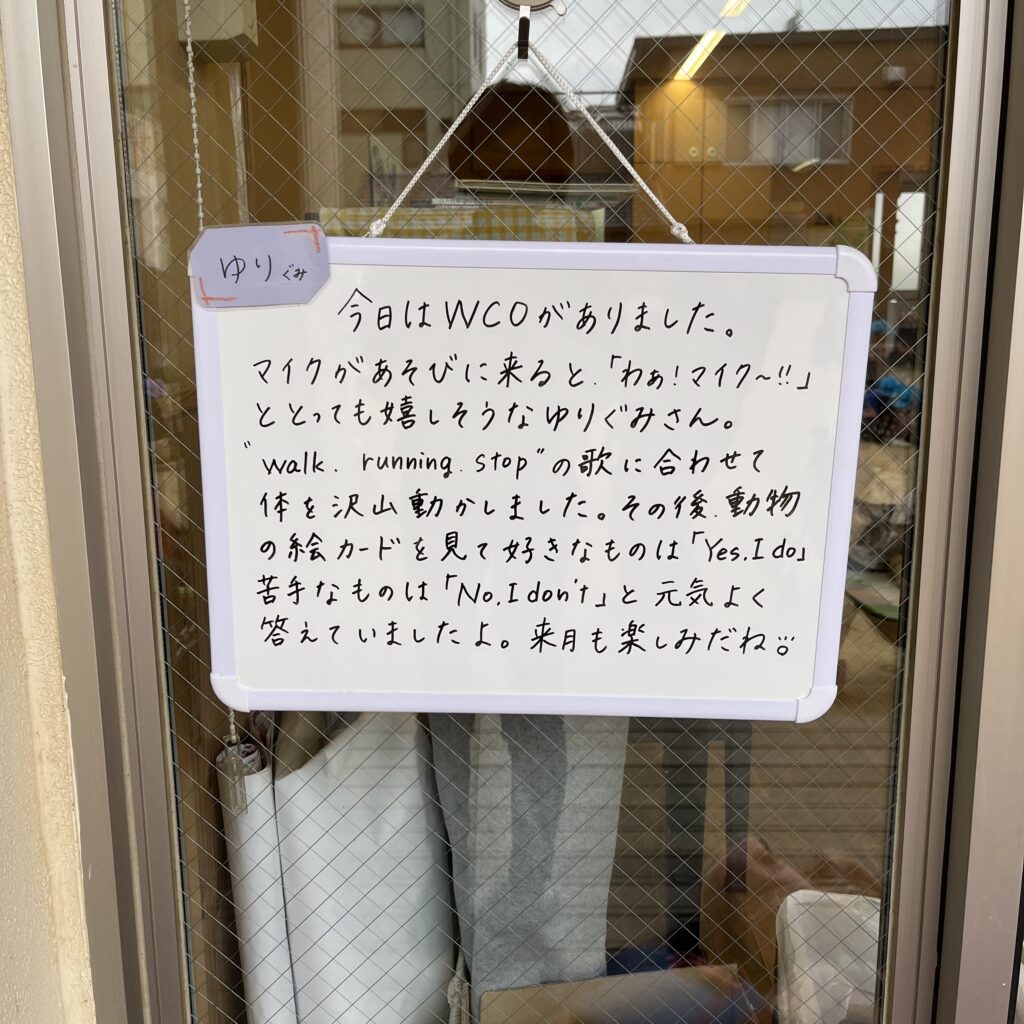 ゆりぐみ
今日はWCOがありました。
マイクがあそびに来ると、「わぁ!マイク〜!!」
ととっても嬉しそうなゆりぐみさん。
"walk. running. stop"の歌に合わせて
体を沢山動かしました。その後、動物
の絵カードを見て好きなものは「Yes,I do」
苦手なものは「No,I don't」と元気よく
答えていましたよ。来月も楽しみだね